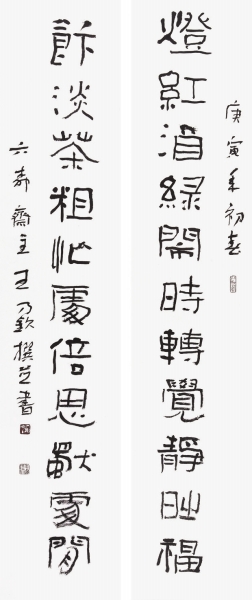 庚寅年初春
燈紅酒綠鬧時轉覺靜福
飰淡茶粗忙處倍思閒
六齋主王乃欽撰並書